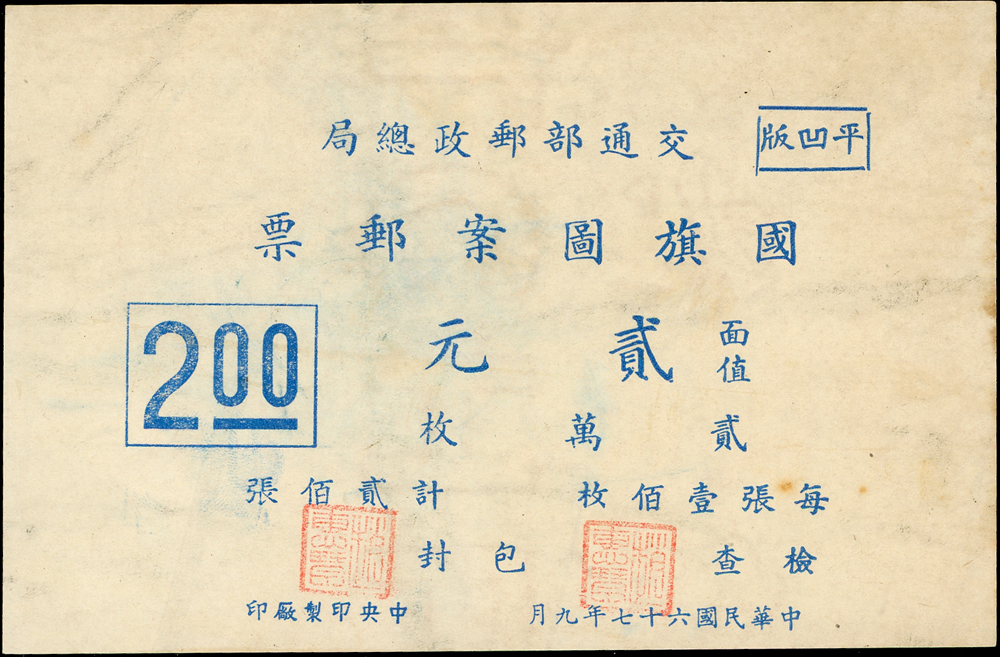 平凹版
交通部郵政總局
國旗圖案郵票
面值 貳元
2.00
貳萬枚
每張壹佰枚 計貳佰張
檢查 包封
中華民國六十七年九月 中央印製廠印